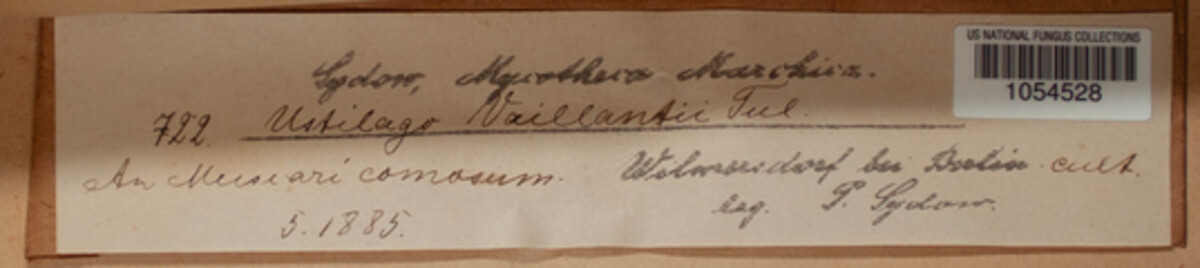 Sydow, Mycotheca Marchica.
722. Ustilago Vaillantii Tul.
An Muscari comosum.
5. 1885.
Wilmersdorf bei Berlin cult.
leg. P. Sydow.
US NATIONAL FUNGUS COLLECTIONS
1054528